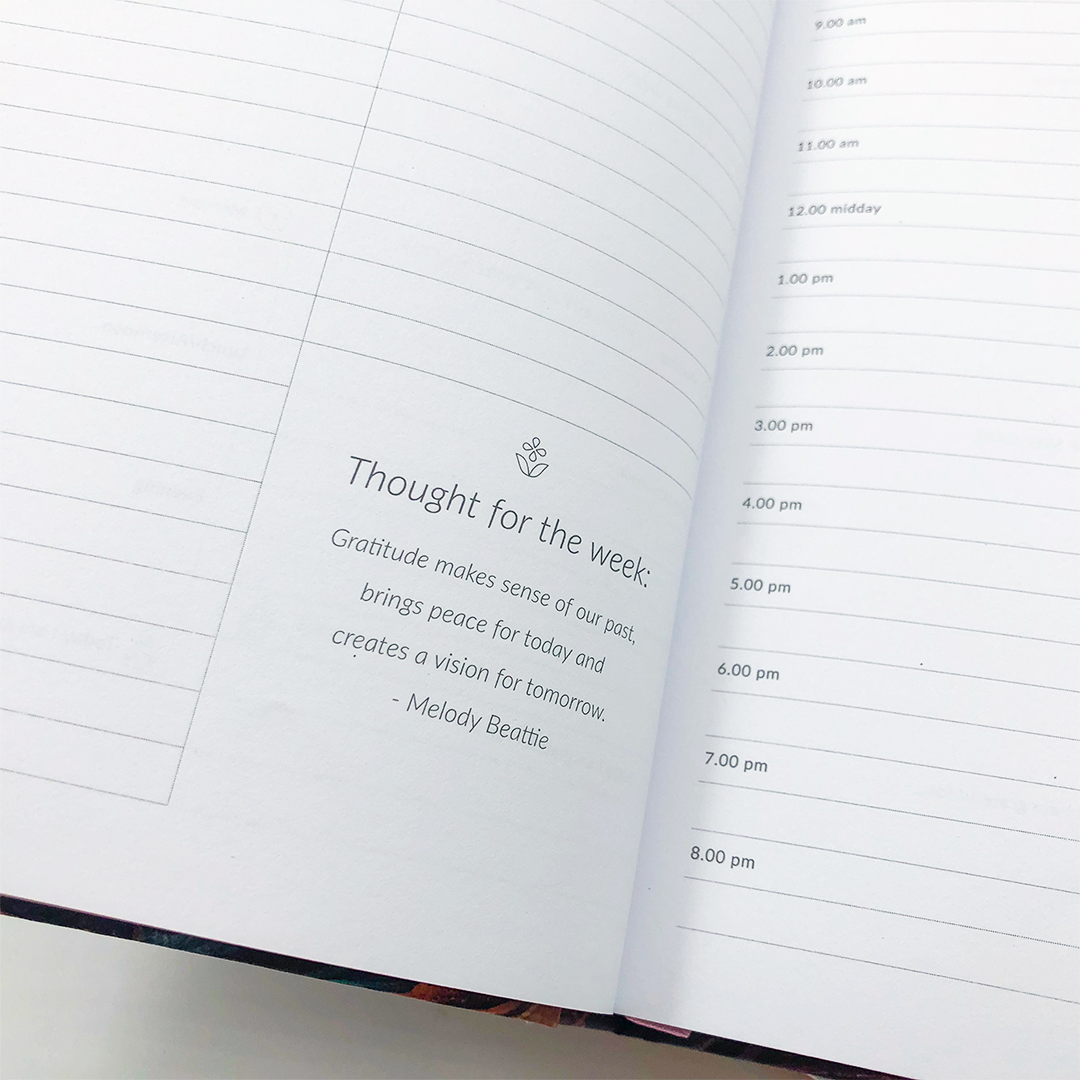 Thought for the week:
Gratitude makes sense of our past,
brings peace for today and
creates a vision for tomorrow.
- Melody Beattie
9.00 am
10.00 am
11.00 am
12.00 midday
1.00 pm
2.00 pm
3.00 pm
4.00 pm
5.00 pm
6.00 pm
7.00 pm
8.00 pm